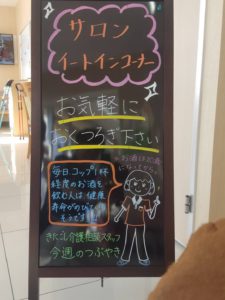 サロン
イートインコーナー
お気軽に
おくつろぎ下さい
お酒は20歳
になってから
毎日コップ1杯
程度のお酒を
飲む人は健康
寿命がのびて
そうです
きたごし介護相談スタッフ
今週のつぶやき